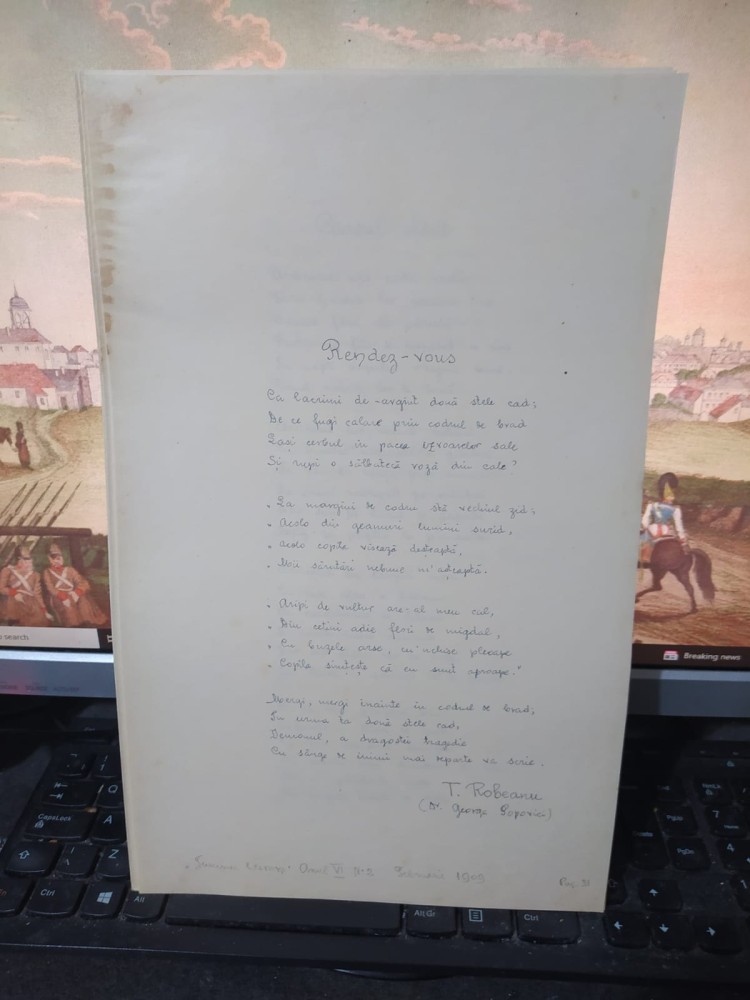 Rendez-vous
Ca lacrimi de-argint două stele cad;
De ce fugi călare prin codrul de brad
Lași cerbul în pacea izvoarelor sale
Și rupi o sălbatecă roză din cale?
„ La margini de codru stă vechiul zid;
„ Acolo din geamuri lumini surîd,
„ Acolo copila visează deșteaptă,
„ Mii sărutări nebune m'așteaptă.
„ Aripi de vultur are-al meu cal,
„ Din cetini adie flori de migdal,
„ Cu buzele arse, cu 'nchise pleoape
„ Copila simțește că eu sunt aproape."
Mergi, mergi înainte în codrul de brad;
În urma ta două stele cad,
Demonul, a dragostei tragedie
Cu sânge de inimi mai departe va scrie.
T. Robeanu
(Dr. George Popovici)
Anul VI Februarie 1909
Pag. 31
search
Breaking news
CapsLock
A
Z
Ctrl
Alt
Alt Gr
Ctrl